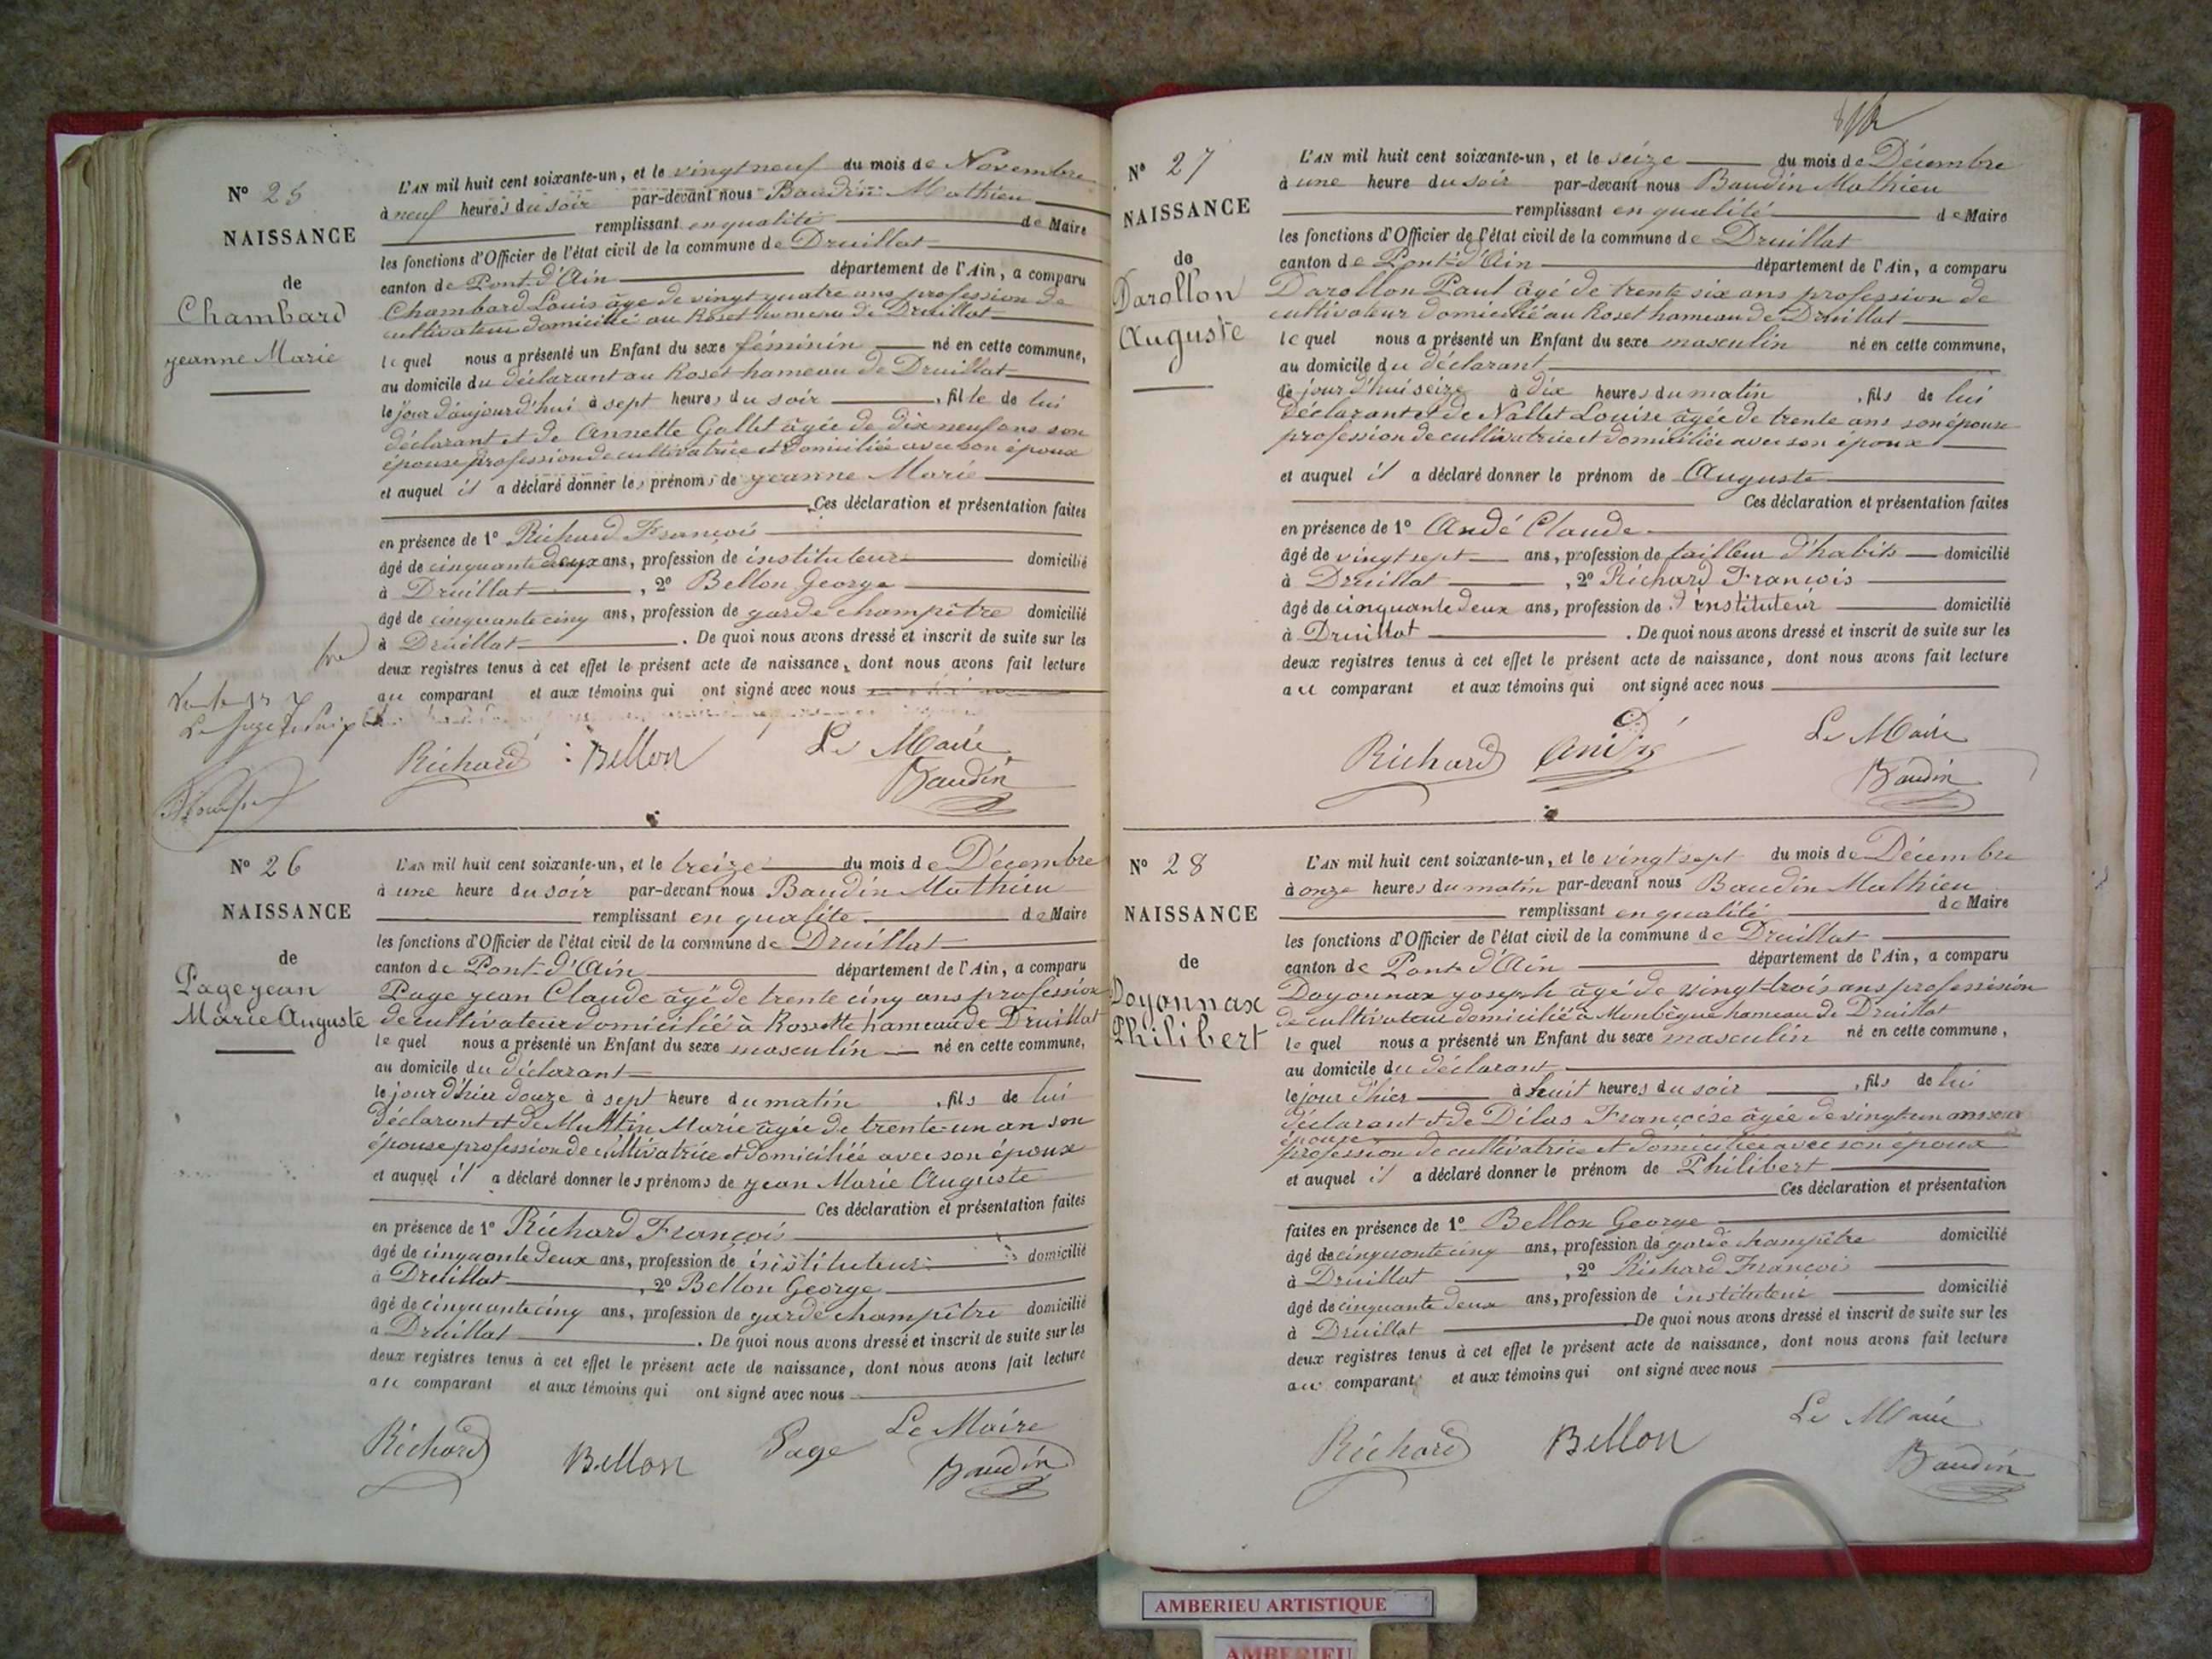 N° 25
NAISSANCE
de
Chambard
jeanne Marie
L'AN mil huit cent soixante-un, et le vingt neuf du mois de Novembre
à neuf heures du soir par-devant nous Baudin Mathieu
remplissant en qualité de Maire
les fonctions d'Officier de l'état civil de la commune de Druillat
canton de Pont-d'Ain département de l'Ain, a comparu
Chambard Louis âgé de vingt quatre ans profession de
cultivateur domicilié au Roset hameau de Druillat
lequel nous a présenté un Enfant du sexe féminin né en cette commune,
au domicile du déclarant au Roset hameau de Druillat
le jour d'aujourd'hui à sept heures du soir, fille de lui
déclarant et de Annette Gallet âgée de dix neuf ans son
épouse profession de cultivatrice et domiciliée avec son époux
et auquel il a déclaré donner les prénoms de jeanne Marie
Ces déclaration et présentation faites
en présence de 1° Richard François
âgé de cinquante deux ans, profession de instituteur domicilié
à Druillat, 2° Bellon George
âgé de cinquante cinq ans, profession de garde champêtre domicilié
à Druillat. De quoi nous avons dressé et inscrit de suite sur les
deux registres tenus à cet effet le présent acte de naissance, dont nous avons fait lecture
au comparant et aux témoins qui ont signé avec nous
Le juge de paix
Richard Bellon Le Maire
Baudin
N° 26
NAISSANCE
de
Page jean
Marie Auguste
L'AN mil huit cent soixante-un, et le treize du mois de Décembre
à une heure du soir par-devant nous Baudin Mathieu
remplissant en qualité de Maire
les fonctions d'Officier de l'état civil de la commune de Druillat
canton de Pont-d'Ain département de l'Ain, a comparu
Page jean Claude âgé de trente cinq ans profession
de cultivateur domicilié à Rossette hameau de Druillat
lequel nous a présenté un Enfant du sexe masculin né en cette commune,
au domicile du déclarant
le jour d'hier douze à sept heure du matin, fils de lui
déclarant et de Marie âgée de trente-un an son
épouse profession de cultivatrice et domiciliée avec son époux
et auquel il a déclaré donner les prénoms de jean Marie Auguste
Ces déclaration et présentation faites
en présence de 1° Richard François
âgé de cinquante deux ans, profession de instituteur domicilié
à Druillat, 2° Bellon George
âgé de cinquante cinq ans, profession de garde champêtre domicilié
à Druillat. De quoi nous avons dressé et inscrit de suite sur les
deux registres tenus à cet effet le présent acte de naissance, dont nous avons fait lecture
au comparant et aux témoins qui ont signé avec nous
Richard Bellon Page Le Maire
Baudin
N° 27
NAISSANCE
de
Darollon
Auguste
L'AN mil huit cent soixante-un, et le seize du mois de Décembre
à une heure du soir par-devant nous Baudin Mathieu
remplissant en qualité de Maire
les fonctions d'Officier de l'état civil de la commune de Druillat
canton de Pont-d'Ain département de l'Ain, a comparu
Darollon Paul âgé de trente six ans profession de
cultivateur domicilié au Roset hameau de Druillat
lequel nous a présenté un Enfant du sexe masculin né en cette commune,
au domicile du déclarant
ce jour d'hui seize à dix heures du matin, fils de lui
déclarant et de Nallet Louise âgée de trente ans son épouse
profession de cultivatrice et domiciliée avec son époux
et auquel il a déclaré donner le prénom de Auguste
Ces déclaration et présentation faites
en présence de 1° André Claude
âgé de vingt sept ans, profession de tailleur d'habits domicilié
à Druillat, 2° Richard François
âgé de cinquante deux ans, profession de d'instituteur domicilié
à Druillat. De quoi nous avons dressé et inscrit de suite sur les
deux registres tenus à cet effet le présent acte de naissance, dont nous avons fait lecture
au comparant et aux témoins qui ont signé avec nous
Richard André Le Maire
Baudin
N° 28
NAISSANCE
de
Doyonnax
Philibert
L'AN mil huit cent soixante-un, et le vingt sept du mois de Décembre
à onze heures du matin par-devant nous Baudin Mathieu
remplissant en qualité de Maire
les fonctions d'Officier de l'état civil de la commune de Druillat
canton de Pont-d'Ain département de l'Ain, a comparu
Doyonnax joseph âgé de vingt-trois ans profession
de cultivateur domicilié à Monbègue hameau de Druillat
lequel nous a présenté un Enfant du sexe masculin né en cette commune,
au domicile du déclarant
le jour d'hier à huit heures du soir, fils de lui
déclarant et de Délas Françoise âgée de vingt un ans son
épouse
profession de cultivatrice et domiciliée avec son époux
et auquel il a déclaré donner le prénom de Philibert
Ces déclaration et présentation
faites en présence de 1° Bellon George
âgé de cinquante cinq ans, profession de garde champêtre domicilié
à Druillat, 2° Richard François
âgé de cinquante deux ans, profession de instituteur domicilié
à Druillat. De quoi nous avons dressé et inscrit de suite sur les
deux registres tenus à cet effet le présent acte de naissance, dont nous avons fait lecture
au comparant et aux témoins qui ont signé avec nous
Richard Bellon Le Maire
Baudin
AMBERIEU ARTISTIQUE
AMBERIEU